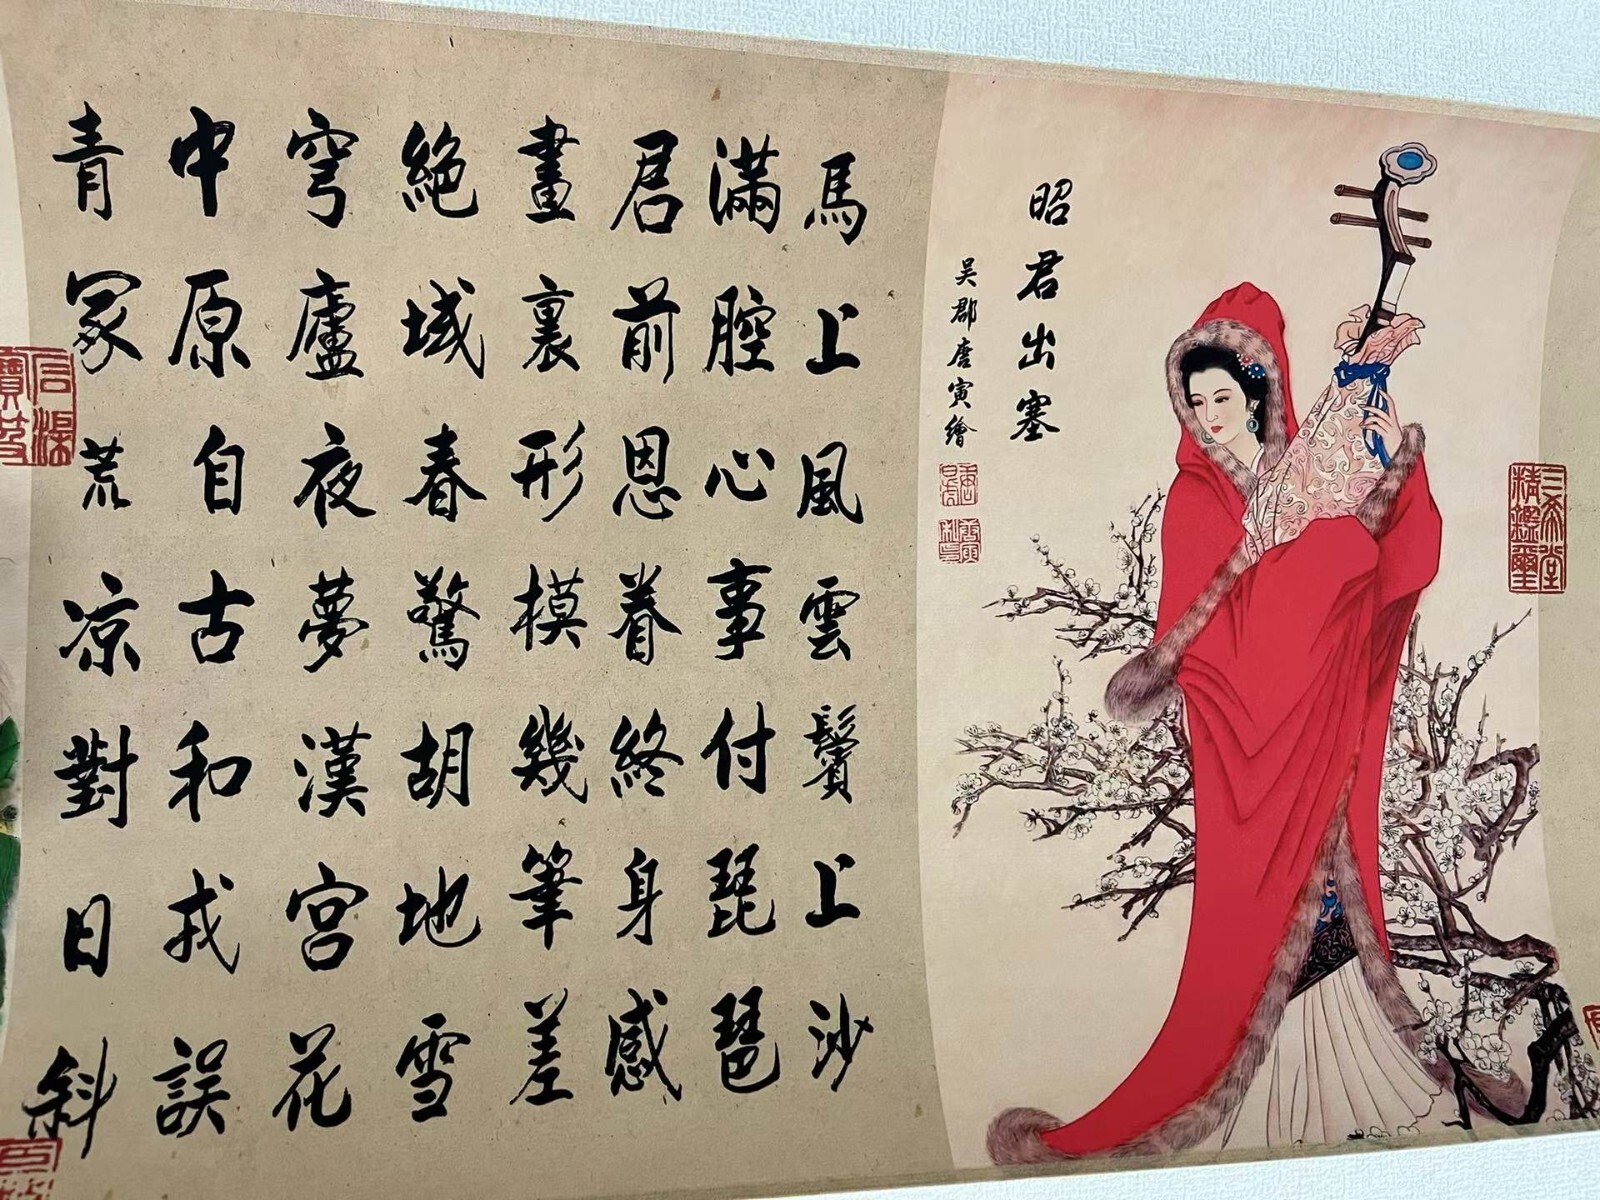 昭君出塞
吳郡唐寅繪
三希堂精鑑璽
馬上風雲鬢上沙
滿腔心事付琵琶
君前恩眷終身感
畫裏形模幾筆差
絕域春驚胡地雪
穹廬夜夢漢宮花
中原自古和戎誤
青冢荒凉對日斜